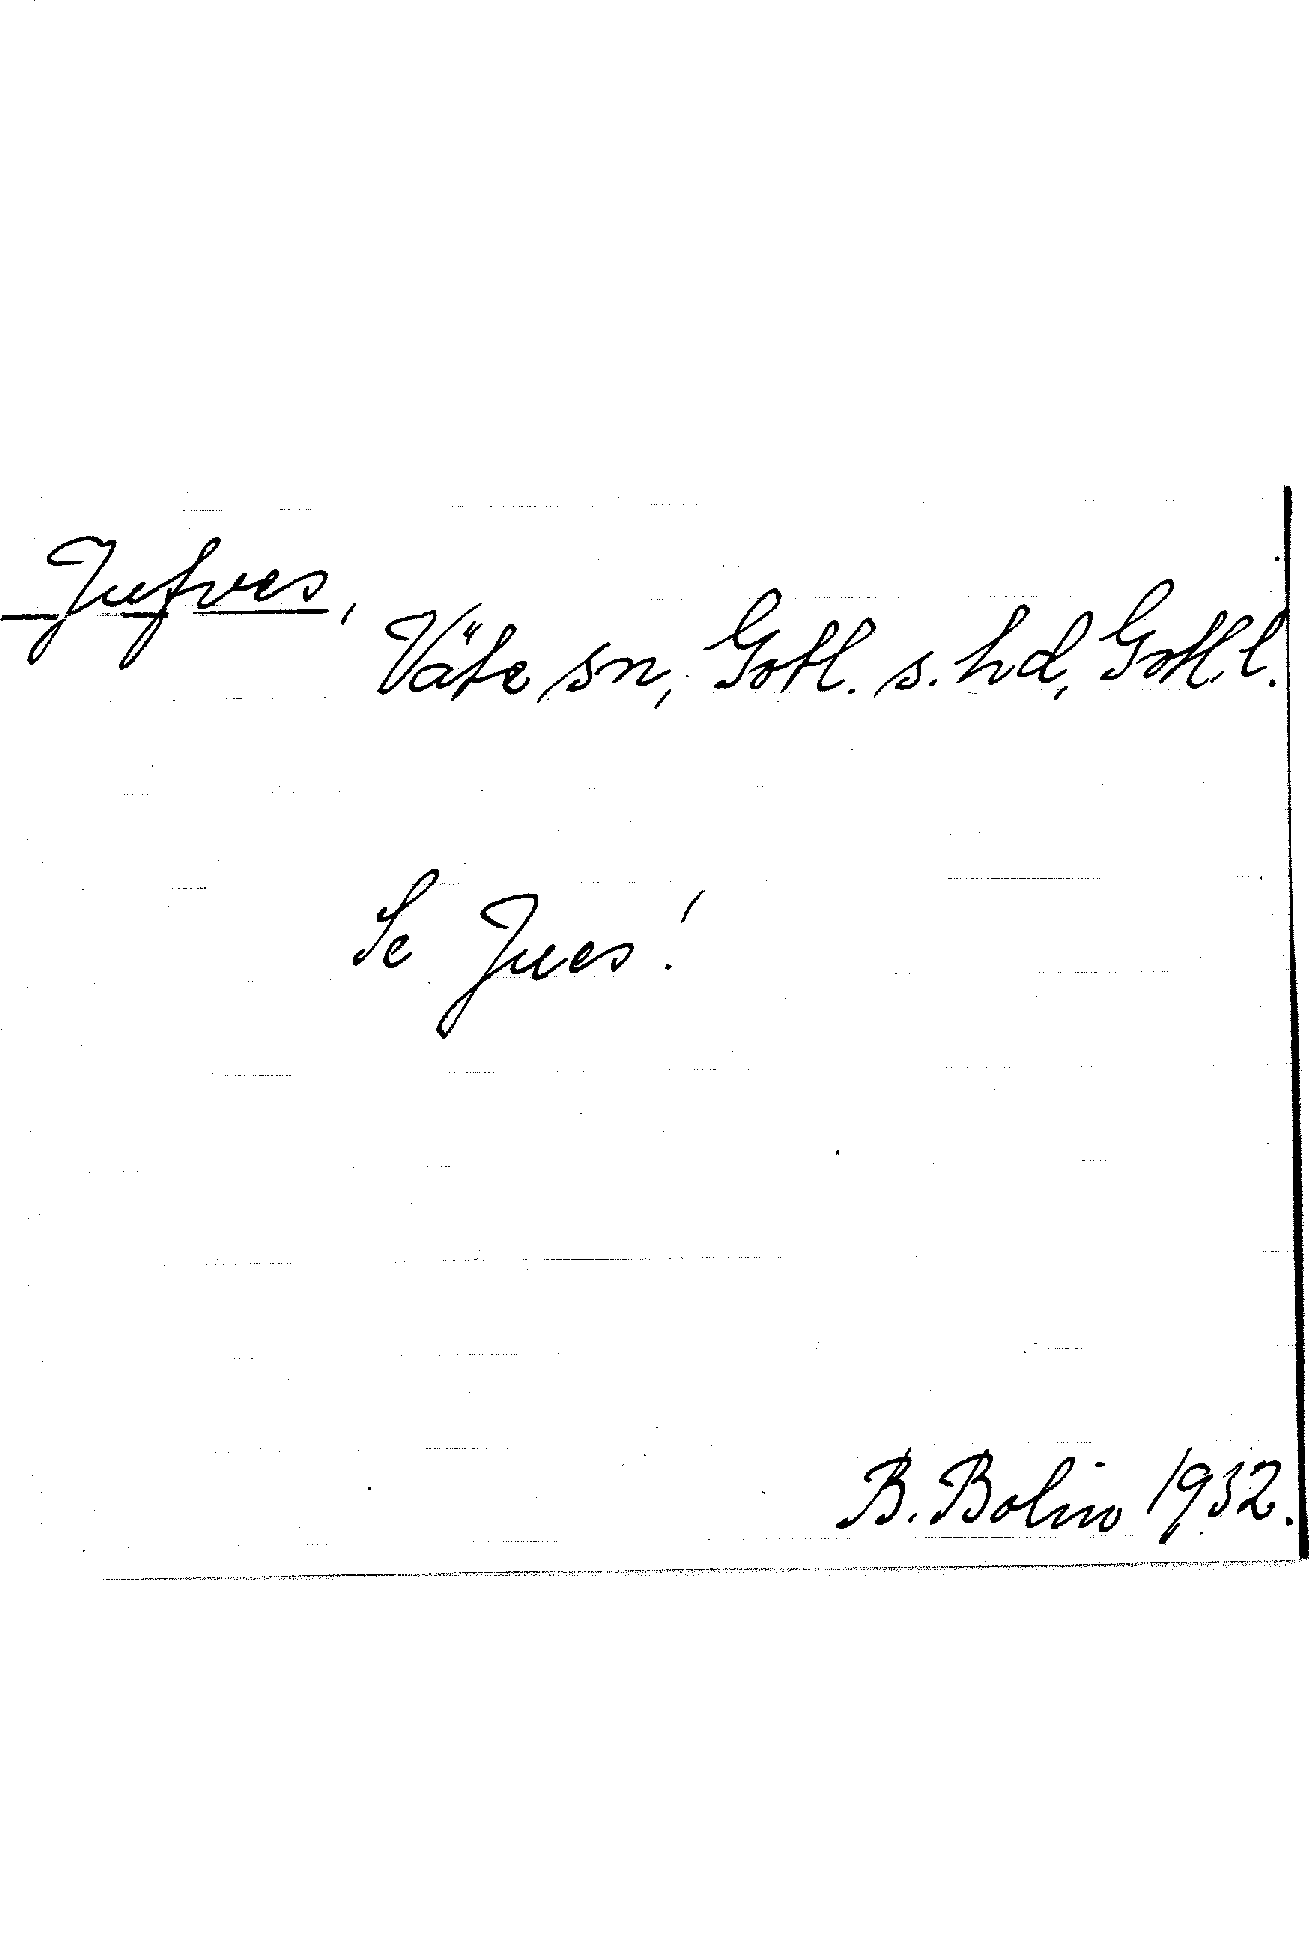 Jufves,
Väte sn, Gotl. s. hd, Gotl. l.
Se Jues!
B. Bolin 1932.